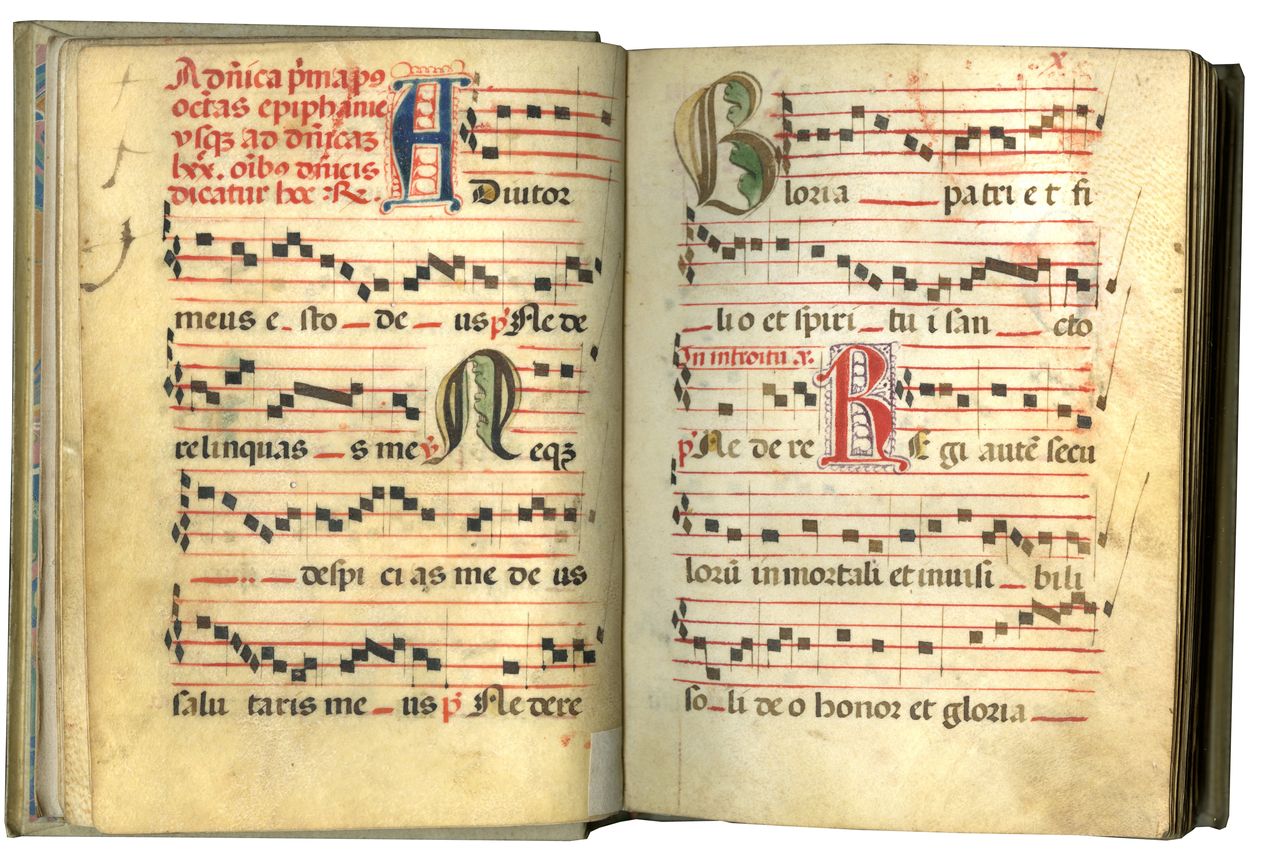 A dñica p̃ma pꝰ
octãs epiphanie
vsqꝫ ad dñicaꝫ
lxx. oĩbꝰ dñicis
dicatur hoc ℞.
A Diutor
meus e_ sto _ de _ us p̃ Ne de
relinquas _ s me ℣ N eqꝫ
_ .. _ despi ci as me de us
salu taris me _ us p̃ Ne dere
x
G loria _ patri e t fi
_ li o et spiri _ tu i san _ cto
In introitu x.
p̃ Ne de re R E gi autẽ secu
lorũ inmortali et inuisi _ bili
so _ li de o honor et gloria _